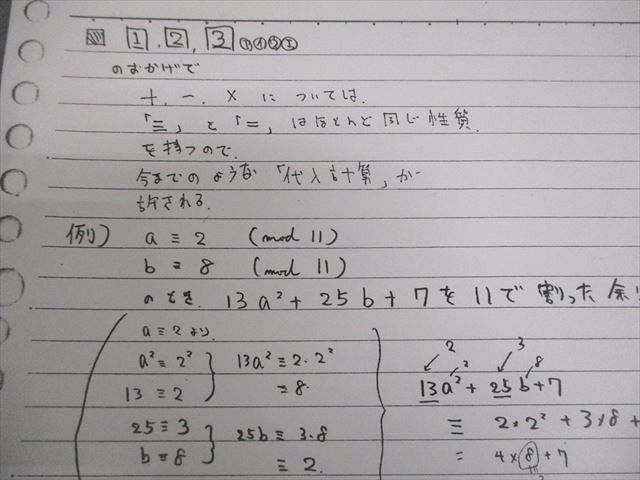 ▨ 1, 2, 3 ①④②①
のおかげで
+, −, × については,
「≡」と「=」はほとんど同じ性質
を持つので,
今までのような「代入計算」が
許される.
例) a ≡ 2 (mod 11)
b ≡ 8 (mod 11)
のとき, 13a² + 25b + 7 を 11で割った余り
a ≡ 2 より
a² ≡ 2²
13 ≡ 2
13a² ≡ 2・2²
= 8
25 ≡ 3
b ≡ 8
25b ≡ 3・8
≡ 2
2 3
2 8
13a² + 25b + 7
≡ 2×2² + 3×8 +
= 4×8 + 7